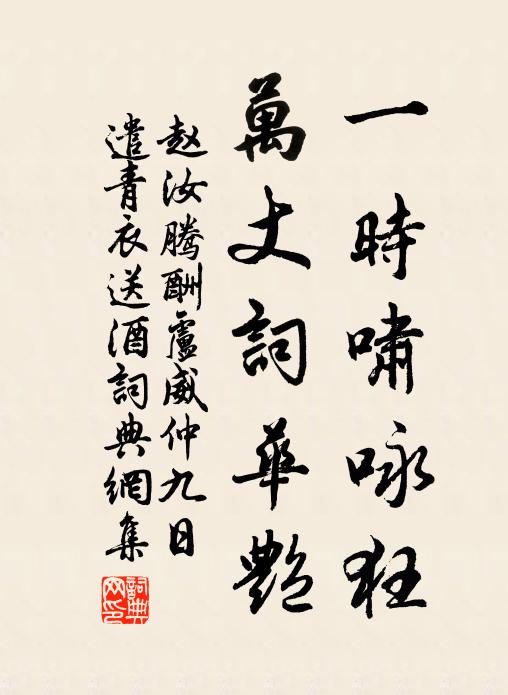 一時嘯咏狂
萬丈詞華艷
赵汝騰酬盧威仲九日
遣青衣送酒詞典網集
詞典網印